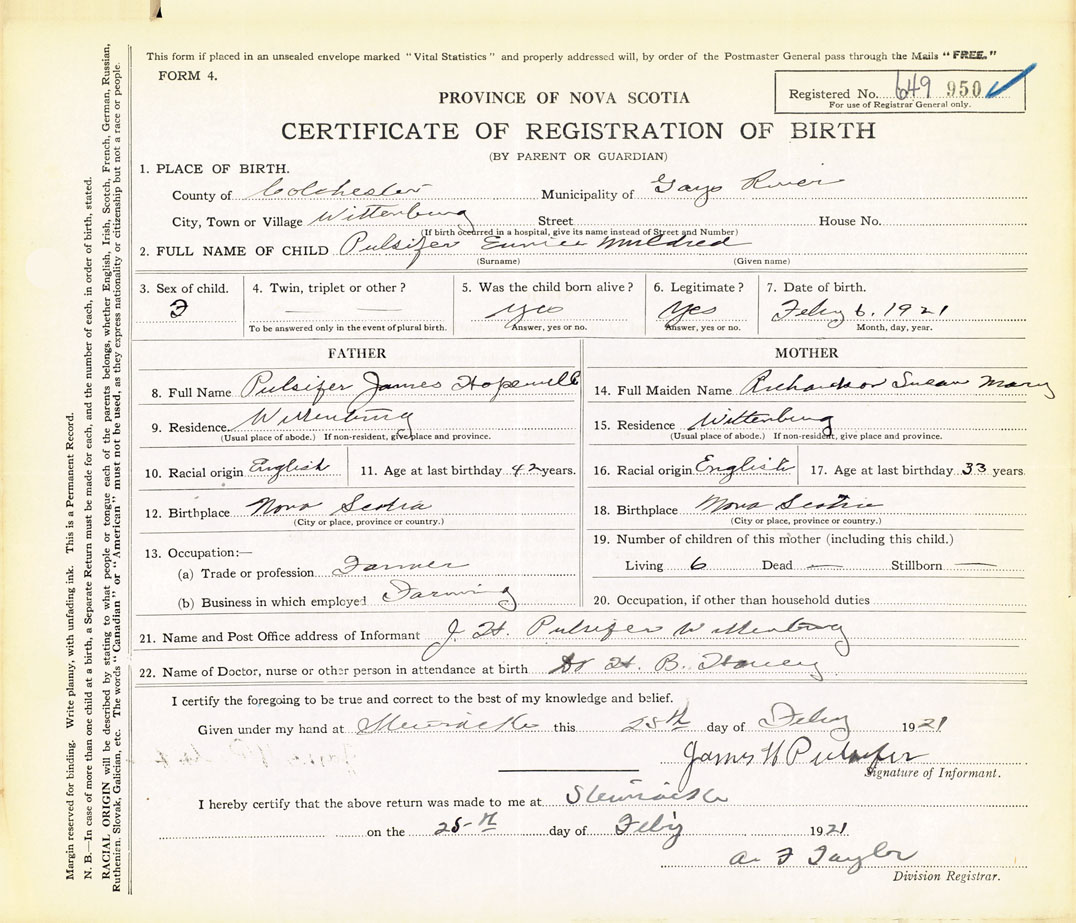 This form if placed in an unsealed envelope marked "Vital Statistics" and properly addressed will, by order of the Postmaster General pass through the Mails "FREE."
FORM 4.
Registered No. 649 950
For use of Registrar General only.
PROVINCE OF NOVA SCOTIA
CERTIFICATE OF REGISTRATION OF BIRTH
(BY PARENT OR GUARDIAN)
1. PLACE OF BIRTH.
County of Colchester Municipality of Gays River
City, Town or Village Wittenburg Street House No.
(If birth occurred in a hospital, give its name instead of Street and Number)
2. FULL NAME OF CHILD Pulsifer Eunice Mildred
(Surname) (Given name)
3. Sex of child. 4. Twin, triplet or other? 5. Was the child born alive? 6. Legitimate? 7. Date of birth.
F — — yes yes Feby 6. 1921
To be answered only in the event of plural birth. Answer, yes or no. Answer, yes or no. Month, day, year.
FATHER
8. Full Name Pulsifer James Hopewell
9. Residence. Wittenburg
(Usual place of abode.) If non-resident, give place and province.
10. Racial origin English 11. Age at last birthday 42 years.
12. Birthplace Nova Scotia
(City or place, province or country.)
13. Occupation:—
(a) Trade or profession Farmer
(b) Business in which employed Farming
MOTHER
14. Full Maiden Name Richardson Susan Mary
15. Residence Wittenburg
(Usual place of abode.) If non-resident, give place and province.
16. Racial origin English 17. Age at last birthday 33 years.
18. Birthplace Nova Scotia
(City or place, province or country.)
19. Number of children of this mother (including this child.)
Living 6 Dead — Stillborn —
20. Occupation, if other than household duties
21. Name and Post Office address of Informant J. H. Pulsifer Wittenburg
22. Name of Doctor, nurse or other person in attendance at birth Dr H. B.
I certify the foregoing to be true and correct to the best of my knowledge and belief.
Given under my hand at Stewiacke this 25th day of Feby 1921
James H Pulsifer
Signature of Informant.
I hereby certify that the above return was made to me at Stewiacke
on the 25th day of Feby 1921
A F Taylor
Division Registrar.
Margin reserved for binding. Write plainly, with unfading ink. This is a Permanent Record.
N. B.—In case of more than one child at a birth, a Separate Return must be made for each, and the number of each, in order of birth, stated.
RACIAL ORIGIN will be described by stating to what people or tongue each of the parents belongs, whether English, Irish, Scotch, French, German, Russian,
Ruthenien, Slovak, Galician, etc. The words "Canadian" or "American" must not be used, as they express nationality or citizenship but not a race or people.